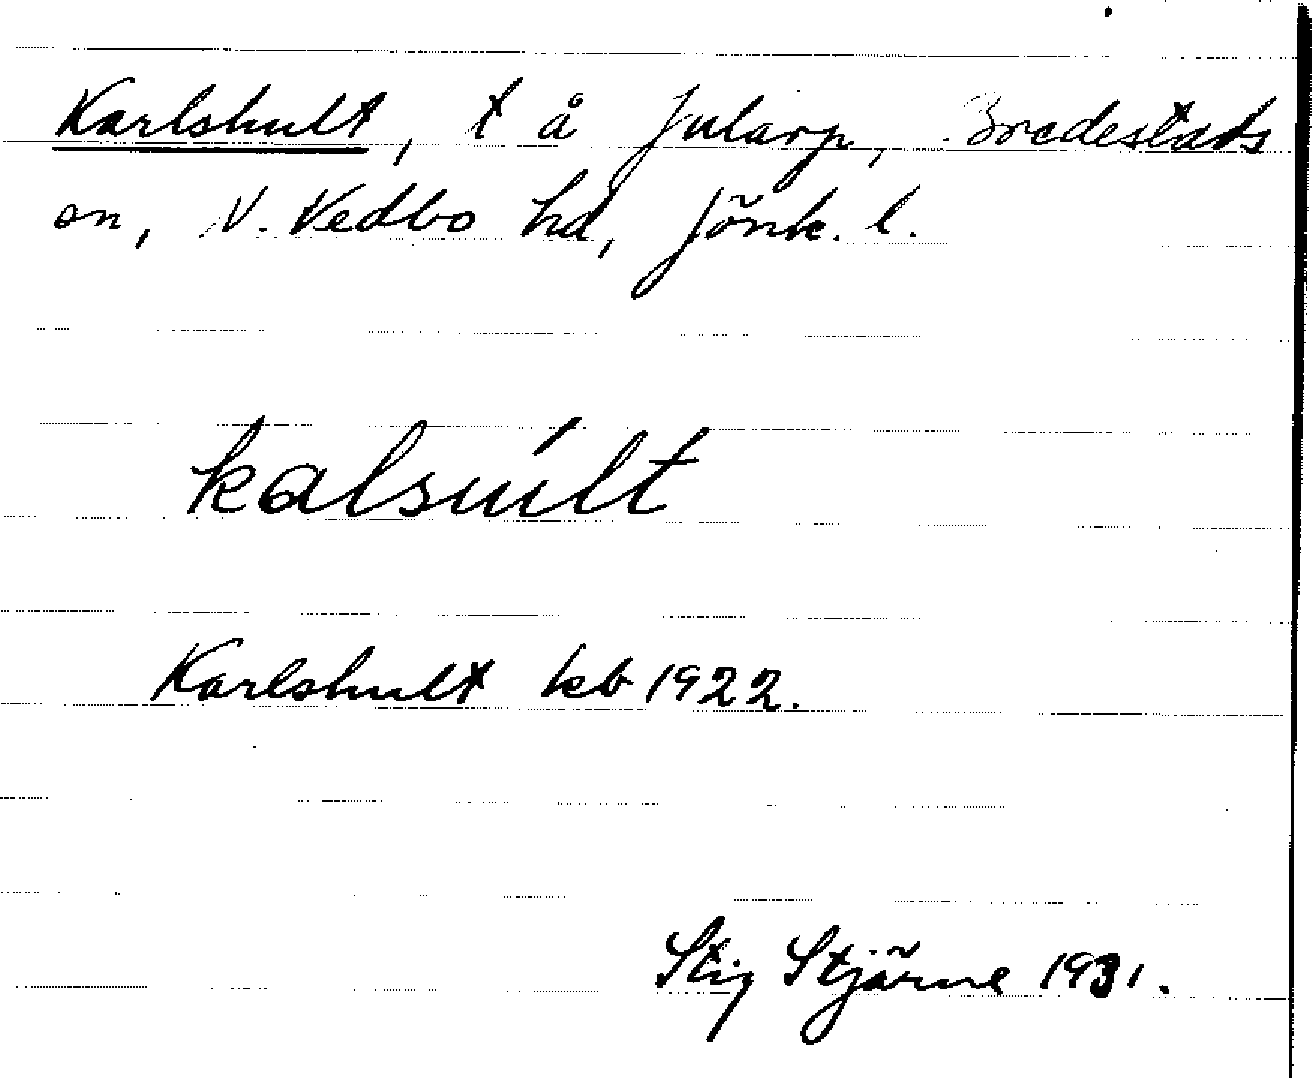 Karlshult, t å Jularp, Bredestads
sn, N. Vedbo hd, Jönk. l.
kalsúlt
Karlshult kb 1922.
Stig Stjärne 1931.